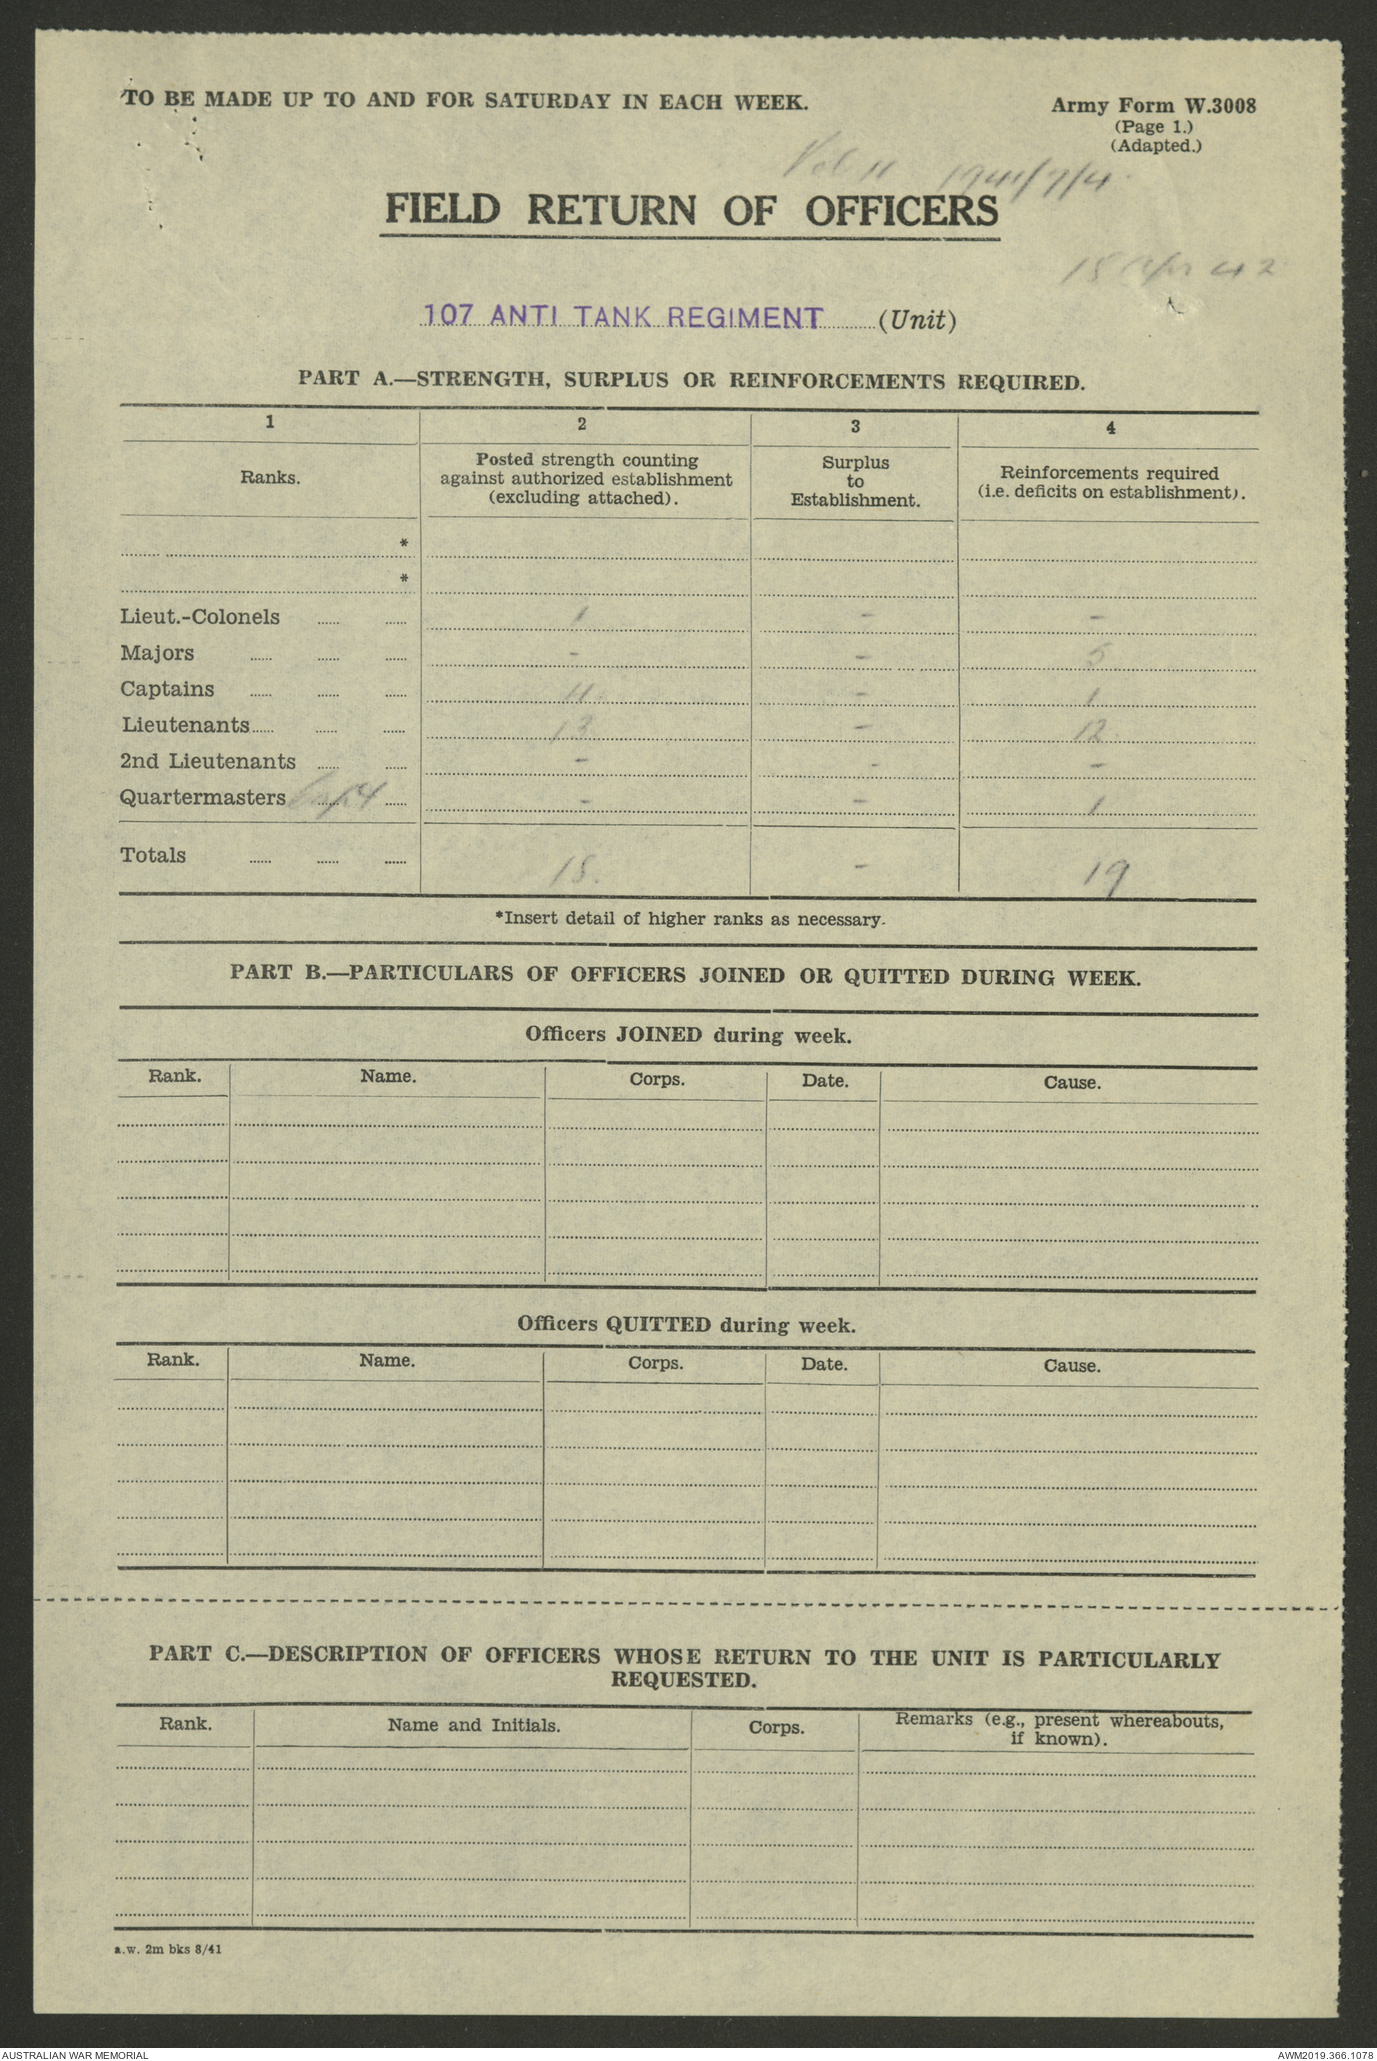 TO BE MADE UP TO AND FOR SATURDAY IN EACH WEEK.
Army Form W.3008
(Page 1.)
(Adapted.)
Vol 11 1941/7/4
FIELD RETURN OF OFFICERS
15 Apr 42
107 ANTI TANK REGIMENT (Unit)
PART A.—STRENGTH, SURPLUS OR REINFORCEMENTS REQUIRED.
1 2 3 4
Ranks.
Posted strength counting
against authorized establishment
(excluding attached).
Surplus
to
Establishment.
Reinforcements required
(i.e. deficits on establishment).
*
*
Lieut.-Colonels 1 - -
Majors - - 5
Captains - 1
Lieutenants 13 - 12
2nd Lieutenants - - -
Quartermasters - - 1
Totals - 19
*Insert detail of higher ranks as necessary.
PART B.—PARTICULARS OF OFFICERS JOINED OR QUITTED DURING WEEK.
Officers JOINED during week.
Rank. Name. Corps. Date. Cause.
Officers QUITTED during week.
Rank. Name. Corps. Date. Cause.
PART C.—DESCRIPTION OF OFFICERS WHOSE RETURN TO THE UNIT IS PARTICULARLY
REQUESTED.
Rank. Name and Initials. Corps. Remarks (e.g., present whereabouts,
if known).
a.w. 2m bks 8/41
AUSTRALIAN WAR MEMORIAL
AWM2019.366.1078